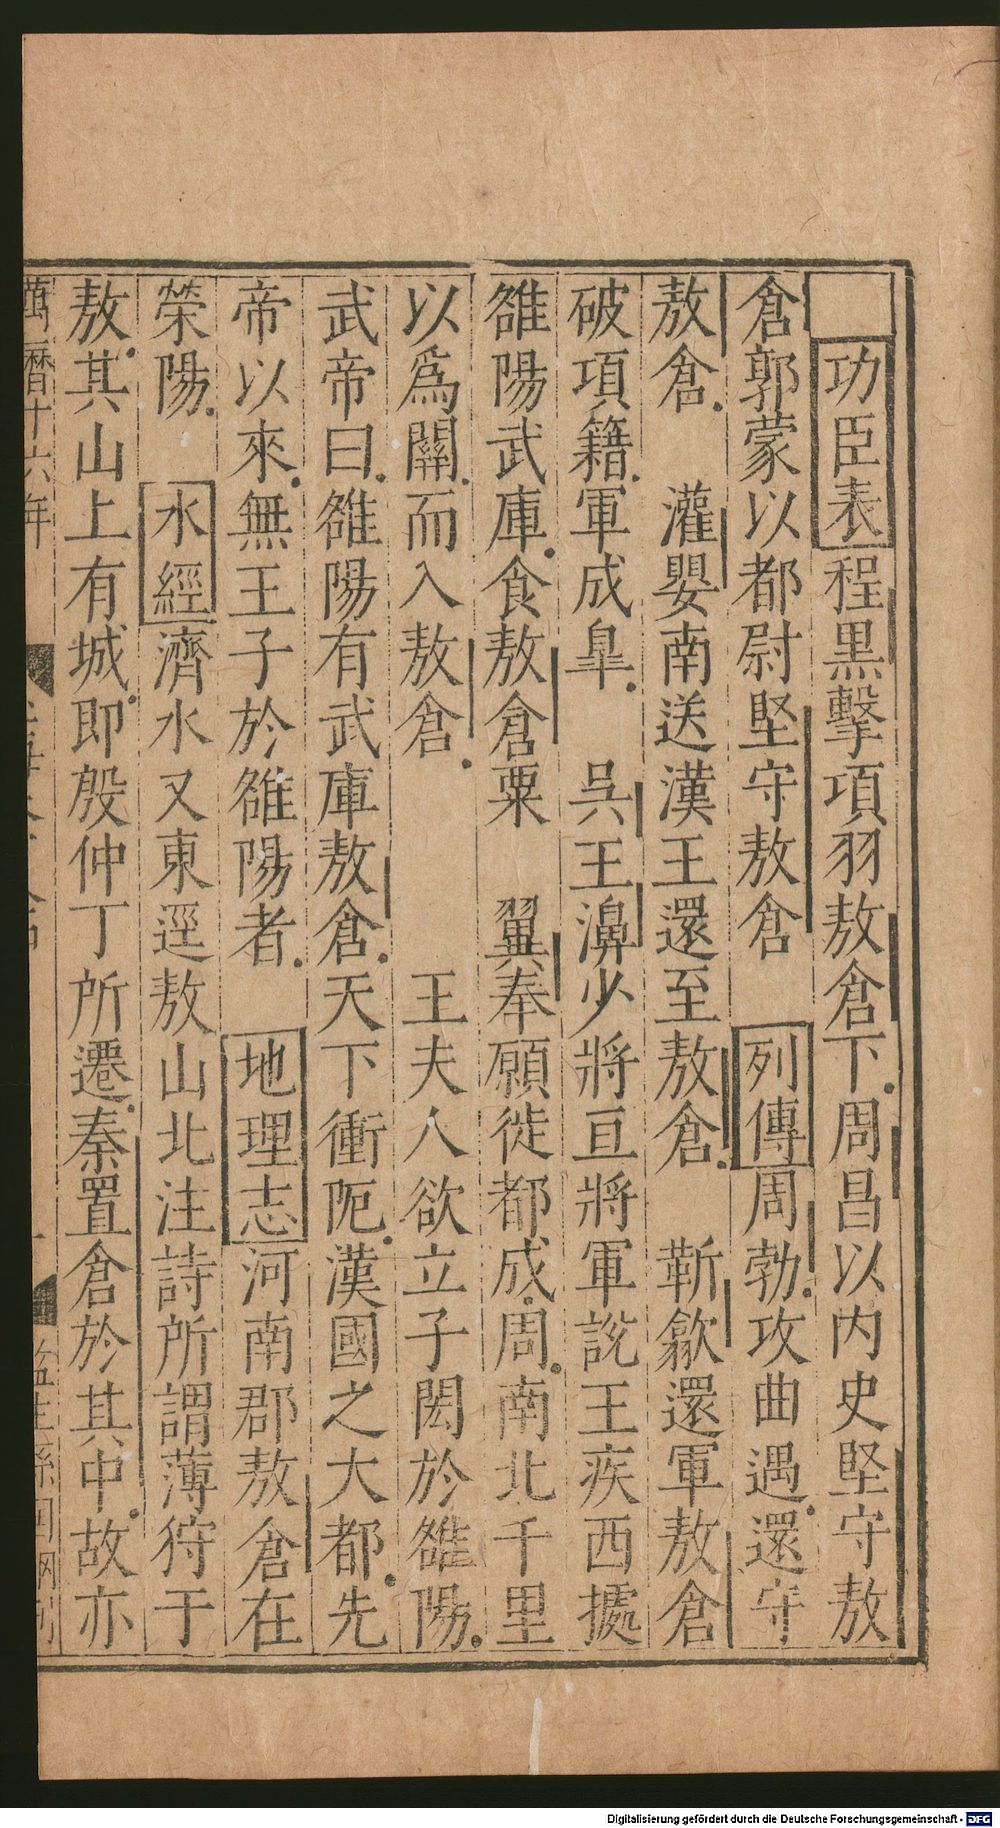 功臣表程黒擊項羽敖倉下周昌以内史堅守敖
倉郭蒙以都尉堅守敖倉 列傳周勃攻曲遇還守
敖倉 灌嬰南送漢王還至敖倉 靳歙還軍敖倉
破項籍軍成臯 吳王濞少將亘將軍說王疾西據
雒陽武庫食敖倉粟 翼奉願徙都成周南北千里
以爲關而入敖倉 王夫人欲立子閎於雒陽
武帝曰雒陽有武庫敖倉天下衝阨漢國之大都先
帝以來無王子於雒陽者 地理志河南郡敖倉在
滎陽 水經濟水又東逕敖山北注詩所謂薄狩于
敖其山上有城即殷仲丁所遷秦置倉於其中故亦
萬曆十六年
Digitalisierung gefördert durch die Deutsche Forschungsgemeinschaft - DFG